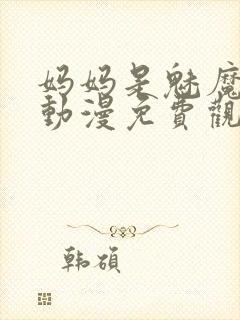 妈妈是魅魔
動漫免費觀
韩碩